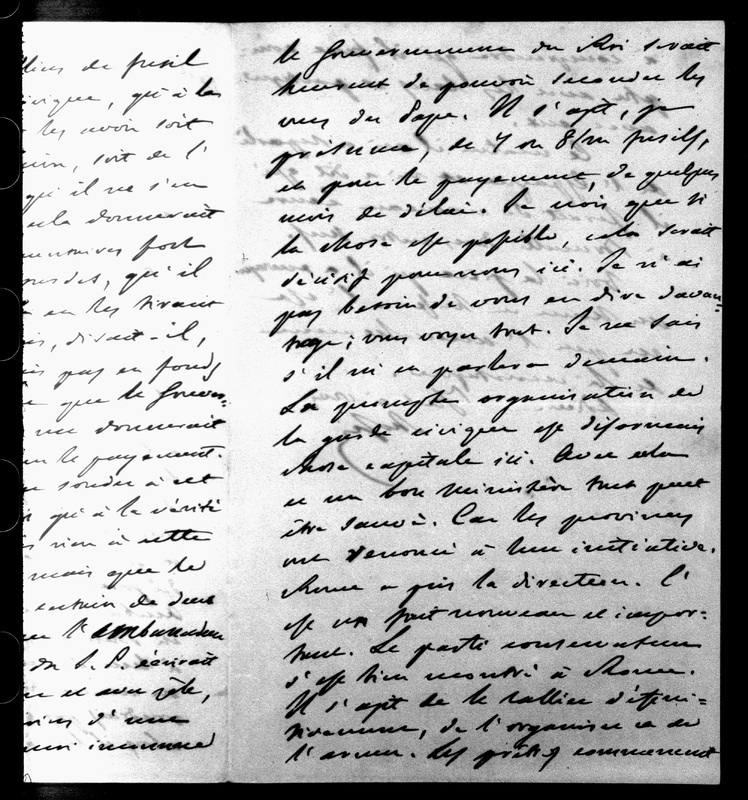 lliers de fusil
civique, qu'à les
les avoir soit
soit de l'
qu'il ne s'en
cela donnerait
fort
qu'il
en les tirant
disait-il,
pas en fonds
que le Gouver=
me donnerait
le payement.
sonder à cet
qu'à la vérité
rien à cette
mais que le
certain de deux
l'ambassadeur
du S. P. écrivait
et avec zèle,
d'une
immense
le Gouvernement du Roi serait
heureux de pouvoir seconder les
vues du Pape. Il s'agit, je
présume, de 7 ou 8/m fusils,
et pour le payement, de quelques
mois de délai. Je crois que si
la chose est possible, cela serait
décisif pour nous ici. Je n'ai
pas besoin de vous en dire davan=
tage; vous voyez tout. Je ne sais
s'il m'en parlera demain.
La prompte organisation de
la garde civique est désormais
chose capitale ici. Avec cela
et un bon ministère tout peut
être sauvé. Car les provinces
ont renoncé à leur initiative.
Rome a pris la direction. C'
est un fait nouveau et impor=
tant. Le parti conservateur
s'est bien montré à Rome.
Il s'agit de le rallier définі=
tivement, de l'organiser et de
l'armer. Les préfets commencent